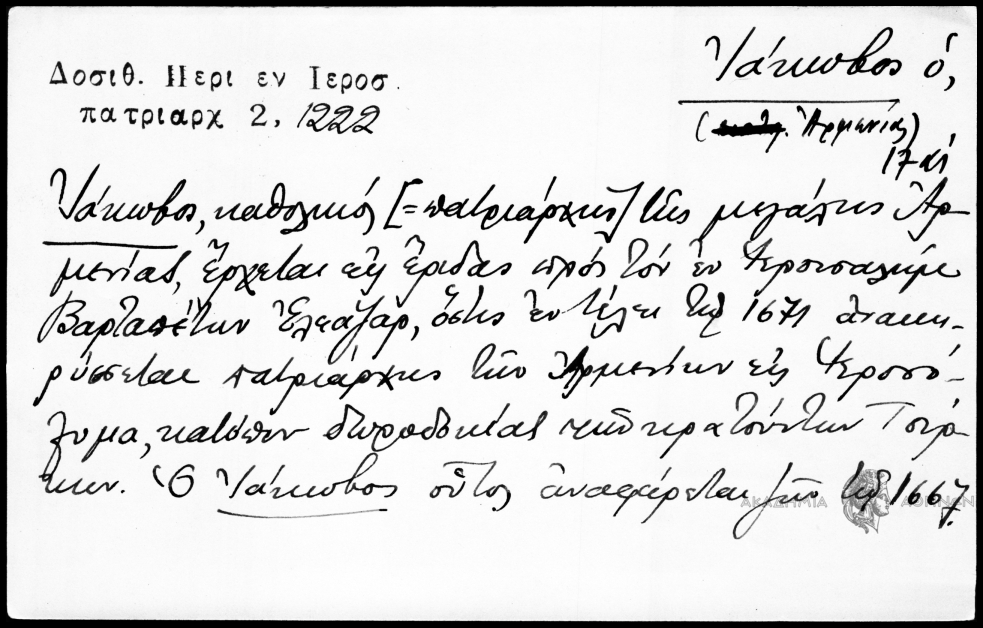 Δοσιθ. Περι εν Ιεροσ.
πατριαρχ 2, 1222
Ἰάκωβος ὁ,
(Ἀρμενίας)
17 αἰ
Ἰάκωβος, καθολικός [=πατριάρχης] τῆς μεγάλης Ἀρ-
μενίας, ἔρχεται εἰς ἔριδας πρὸς τὸν ἐν Ἱερουσαλήμ
Βαρταπέτην Ἐλεάζαρ, ὅστις ἐν τέλει τῷ 1671 ἀνακη-
ρύσσεται πατριάρχης τῶν Ἀρμενίων εἰς Ἱεροσό-
λυμα, κατόπιν δωροδοκίας τῶν κρατούντων Τούρ-
κων. Ὁ Ἰάκωβος οὗτος ἀναφέρεται ζῶν τῷ 1667.
ΑΚΑΔΗΜΙΑ ΑΘΗΝΩΝ